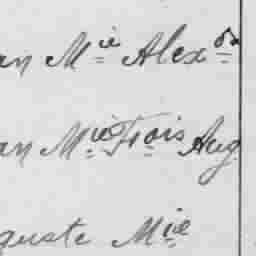 an Mie Alexdre
an Mie Frois Aug
guste Mie